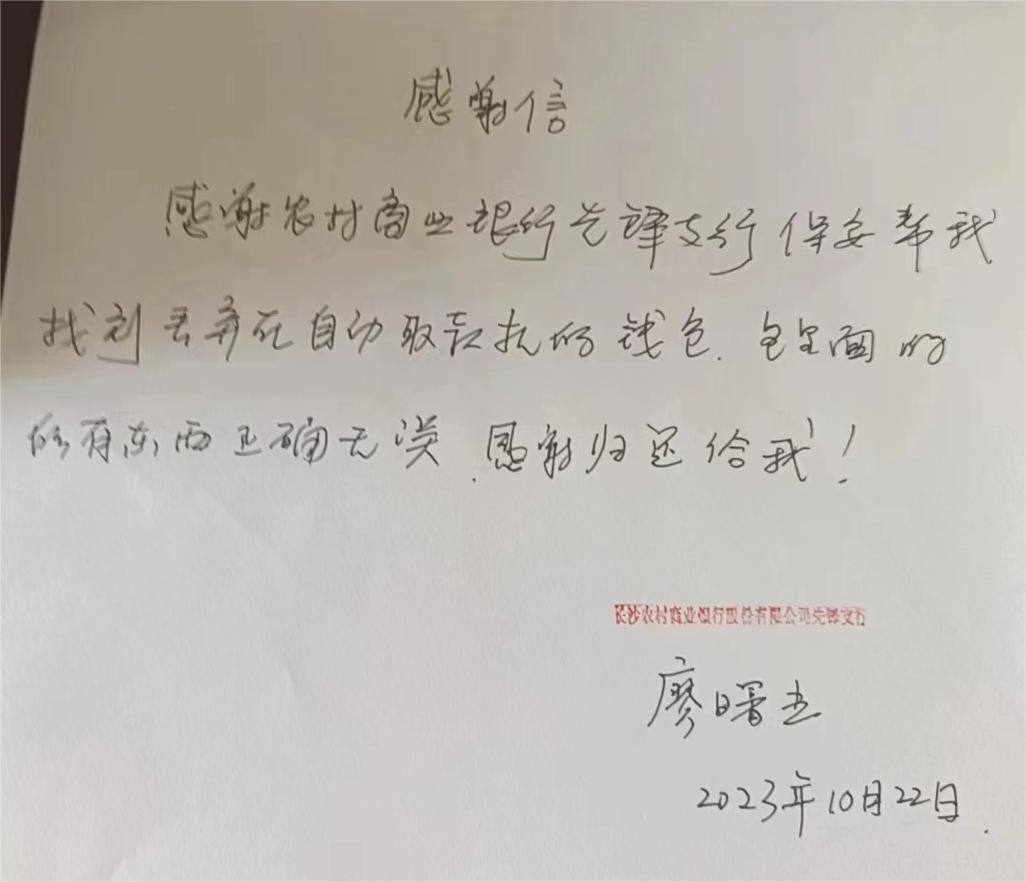 感谢信
感谢农村商业银行先锋支行保安帮我
找到丢弃在自动取款机的钱包.包里面的
所有东西正确无误.感谢归还给我!
长沙农村商业银行股份有限公司先锋支行
廖曙
2023年10月22日.